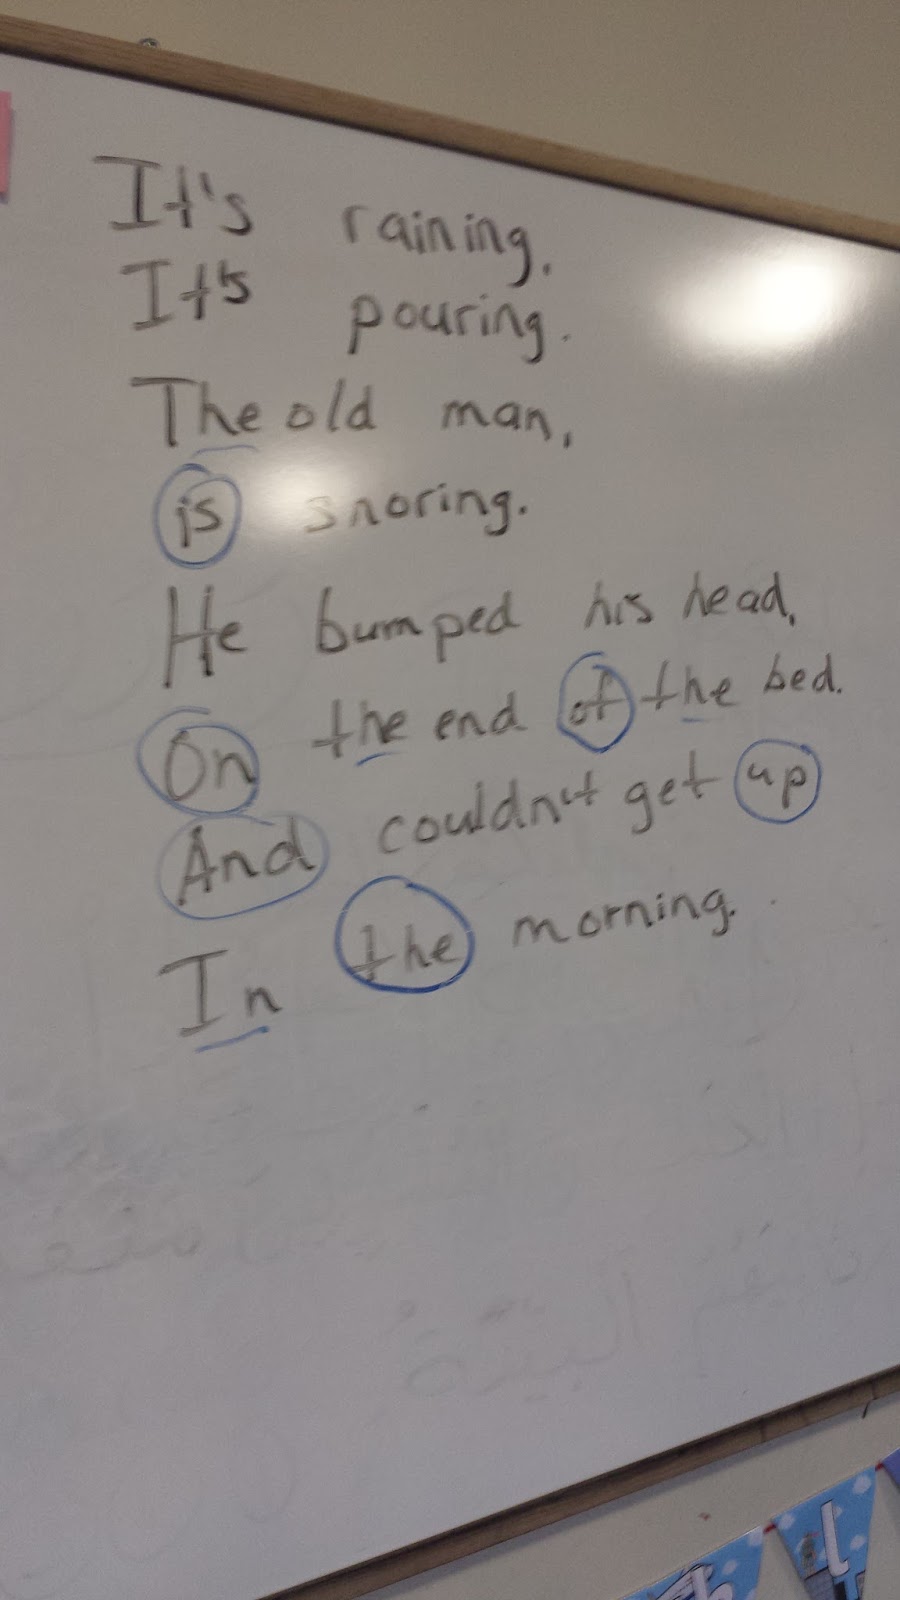 It's raining,
It's pouring.
The old man,
is snoring.
He bumped his head,
On the end of the bed.
And couldn't get up
In the morning.
البيئة